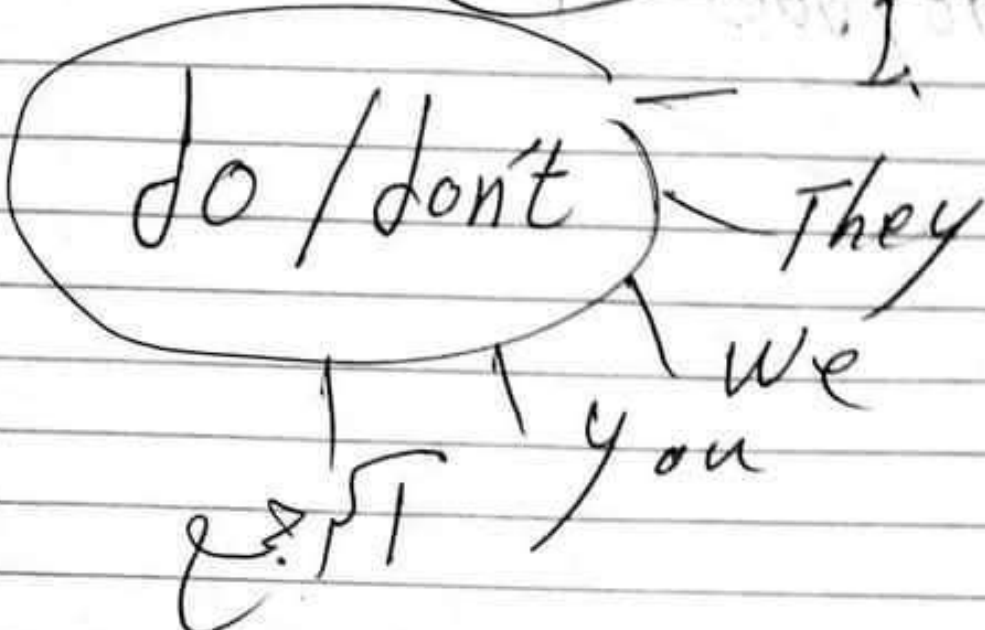 I
do / don't
They
We
you
الجمع